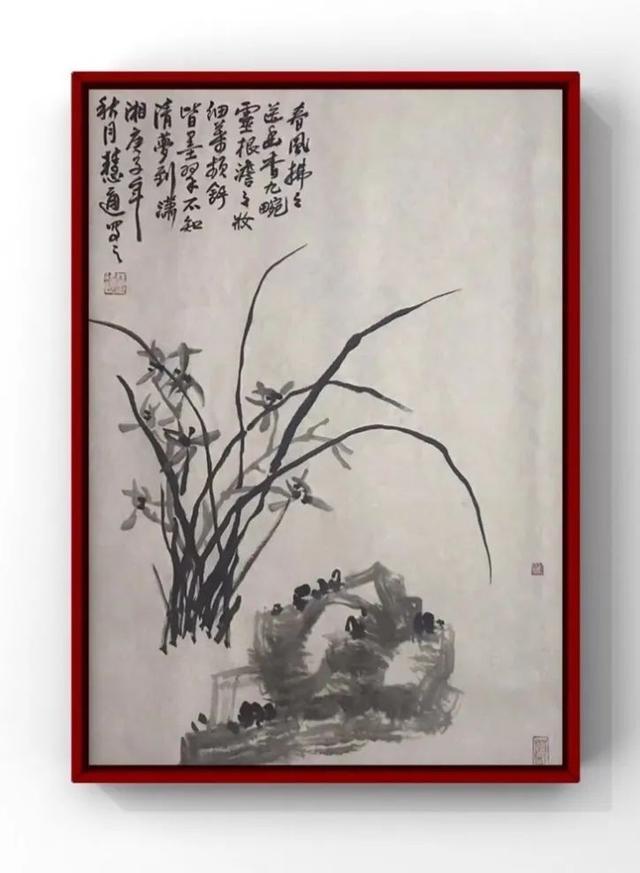 春風拂々
送幽香九畹
靈根澹々妝
細葉頻舒
皆墨翠不知
清夢到瀟
湘庚子年
秋月慧通寫之